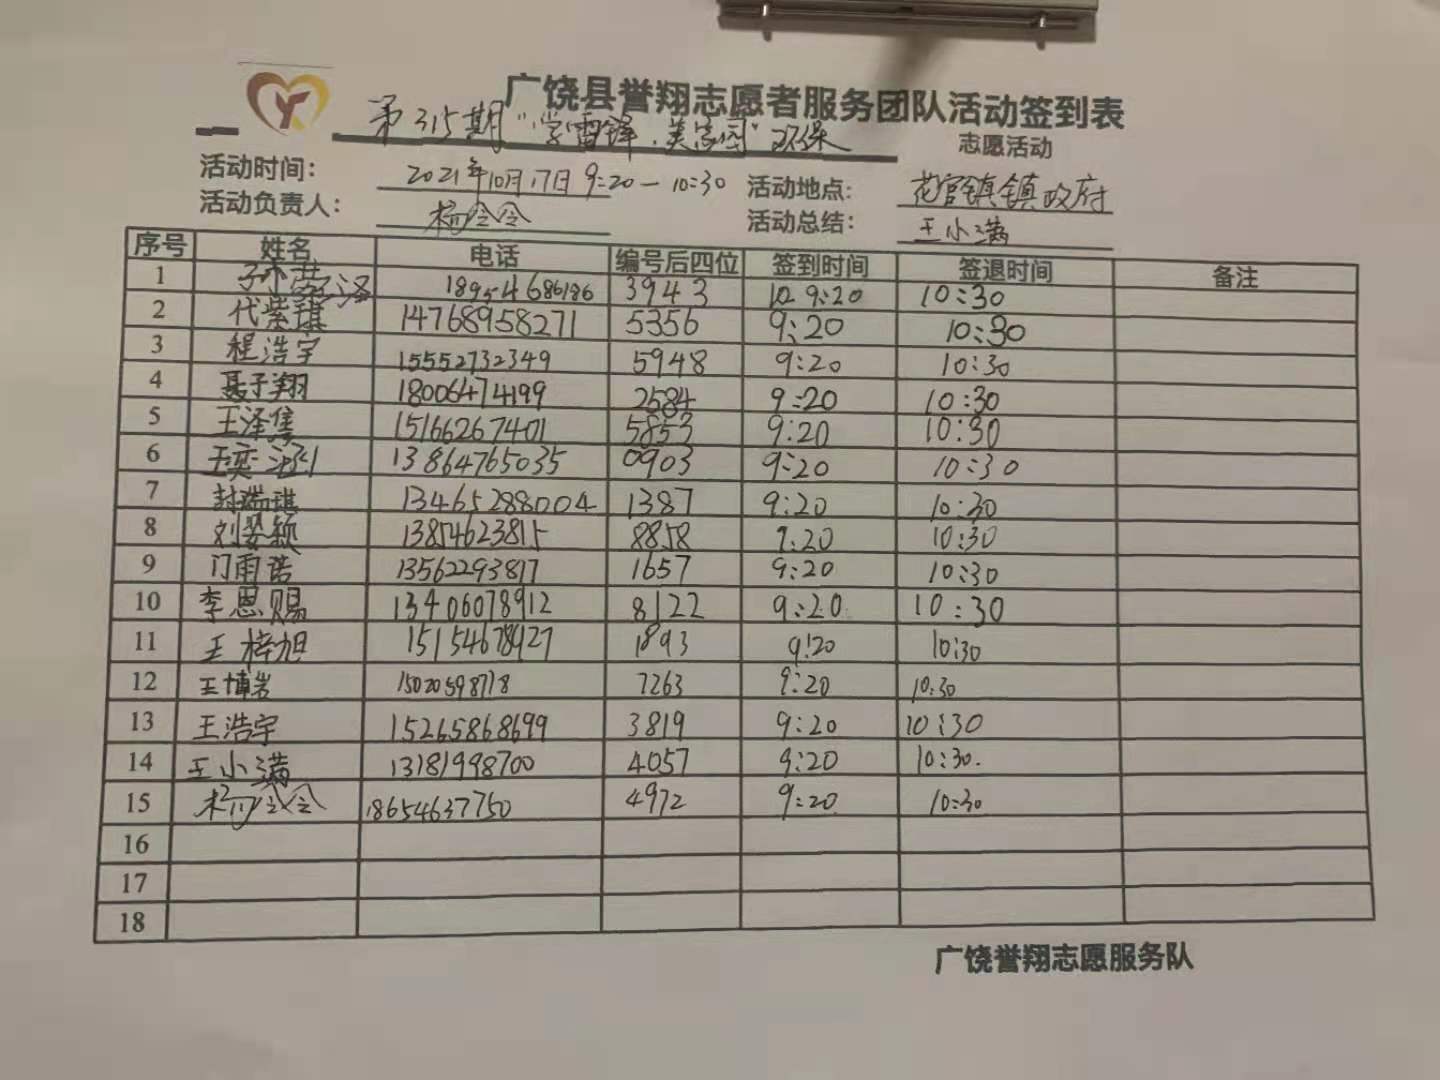 广饶县誉翔志愿者服务团队活动签到表
第315期"学雷锋·美家园"环保 志愿活动
活动时间： 2021年10月17日 9:20—10:30 活动地点: 花官镇镇政府
活动负责人： 杨令令 活动总结： 王小满
序号 姓名 电话 编号后四位 签到时间 签退时间 备注
1 18954686186 3943 9:20 10:30
2 代紫琪 14768958271 5356 9:20 10:30
3 程浩宇 15552732349 5948 9:20 10:30
4 聂子翔 18006474199 2584 9:20 10:30
5 王泽隽 15166267401 5853 9:20 10:30
6 王奕 13864765035 0903 9:20 10:30
7 封瑞琪 13465288004 1387 9:20 10:30
8 刘姿颖 13854623815 8858 9:20 10:30
9 门雨诺 13562293817 1657 9:20 10:30
10 李恩赐 13406078912 8122 9:20 10:30
11 王梓旭 15154678927 1893 9:20 10:30
12 王博岩 15020598718 7263 9:20 10:30
13 王浩宇 15265868699 3819 9:20 10:30
14 王小满 13181998700 4057 9:20 10:30.
15 杨令令 18654637750 4972 9:20 10:30
16
17
18
广饶誉翔志愿服务队